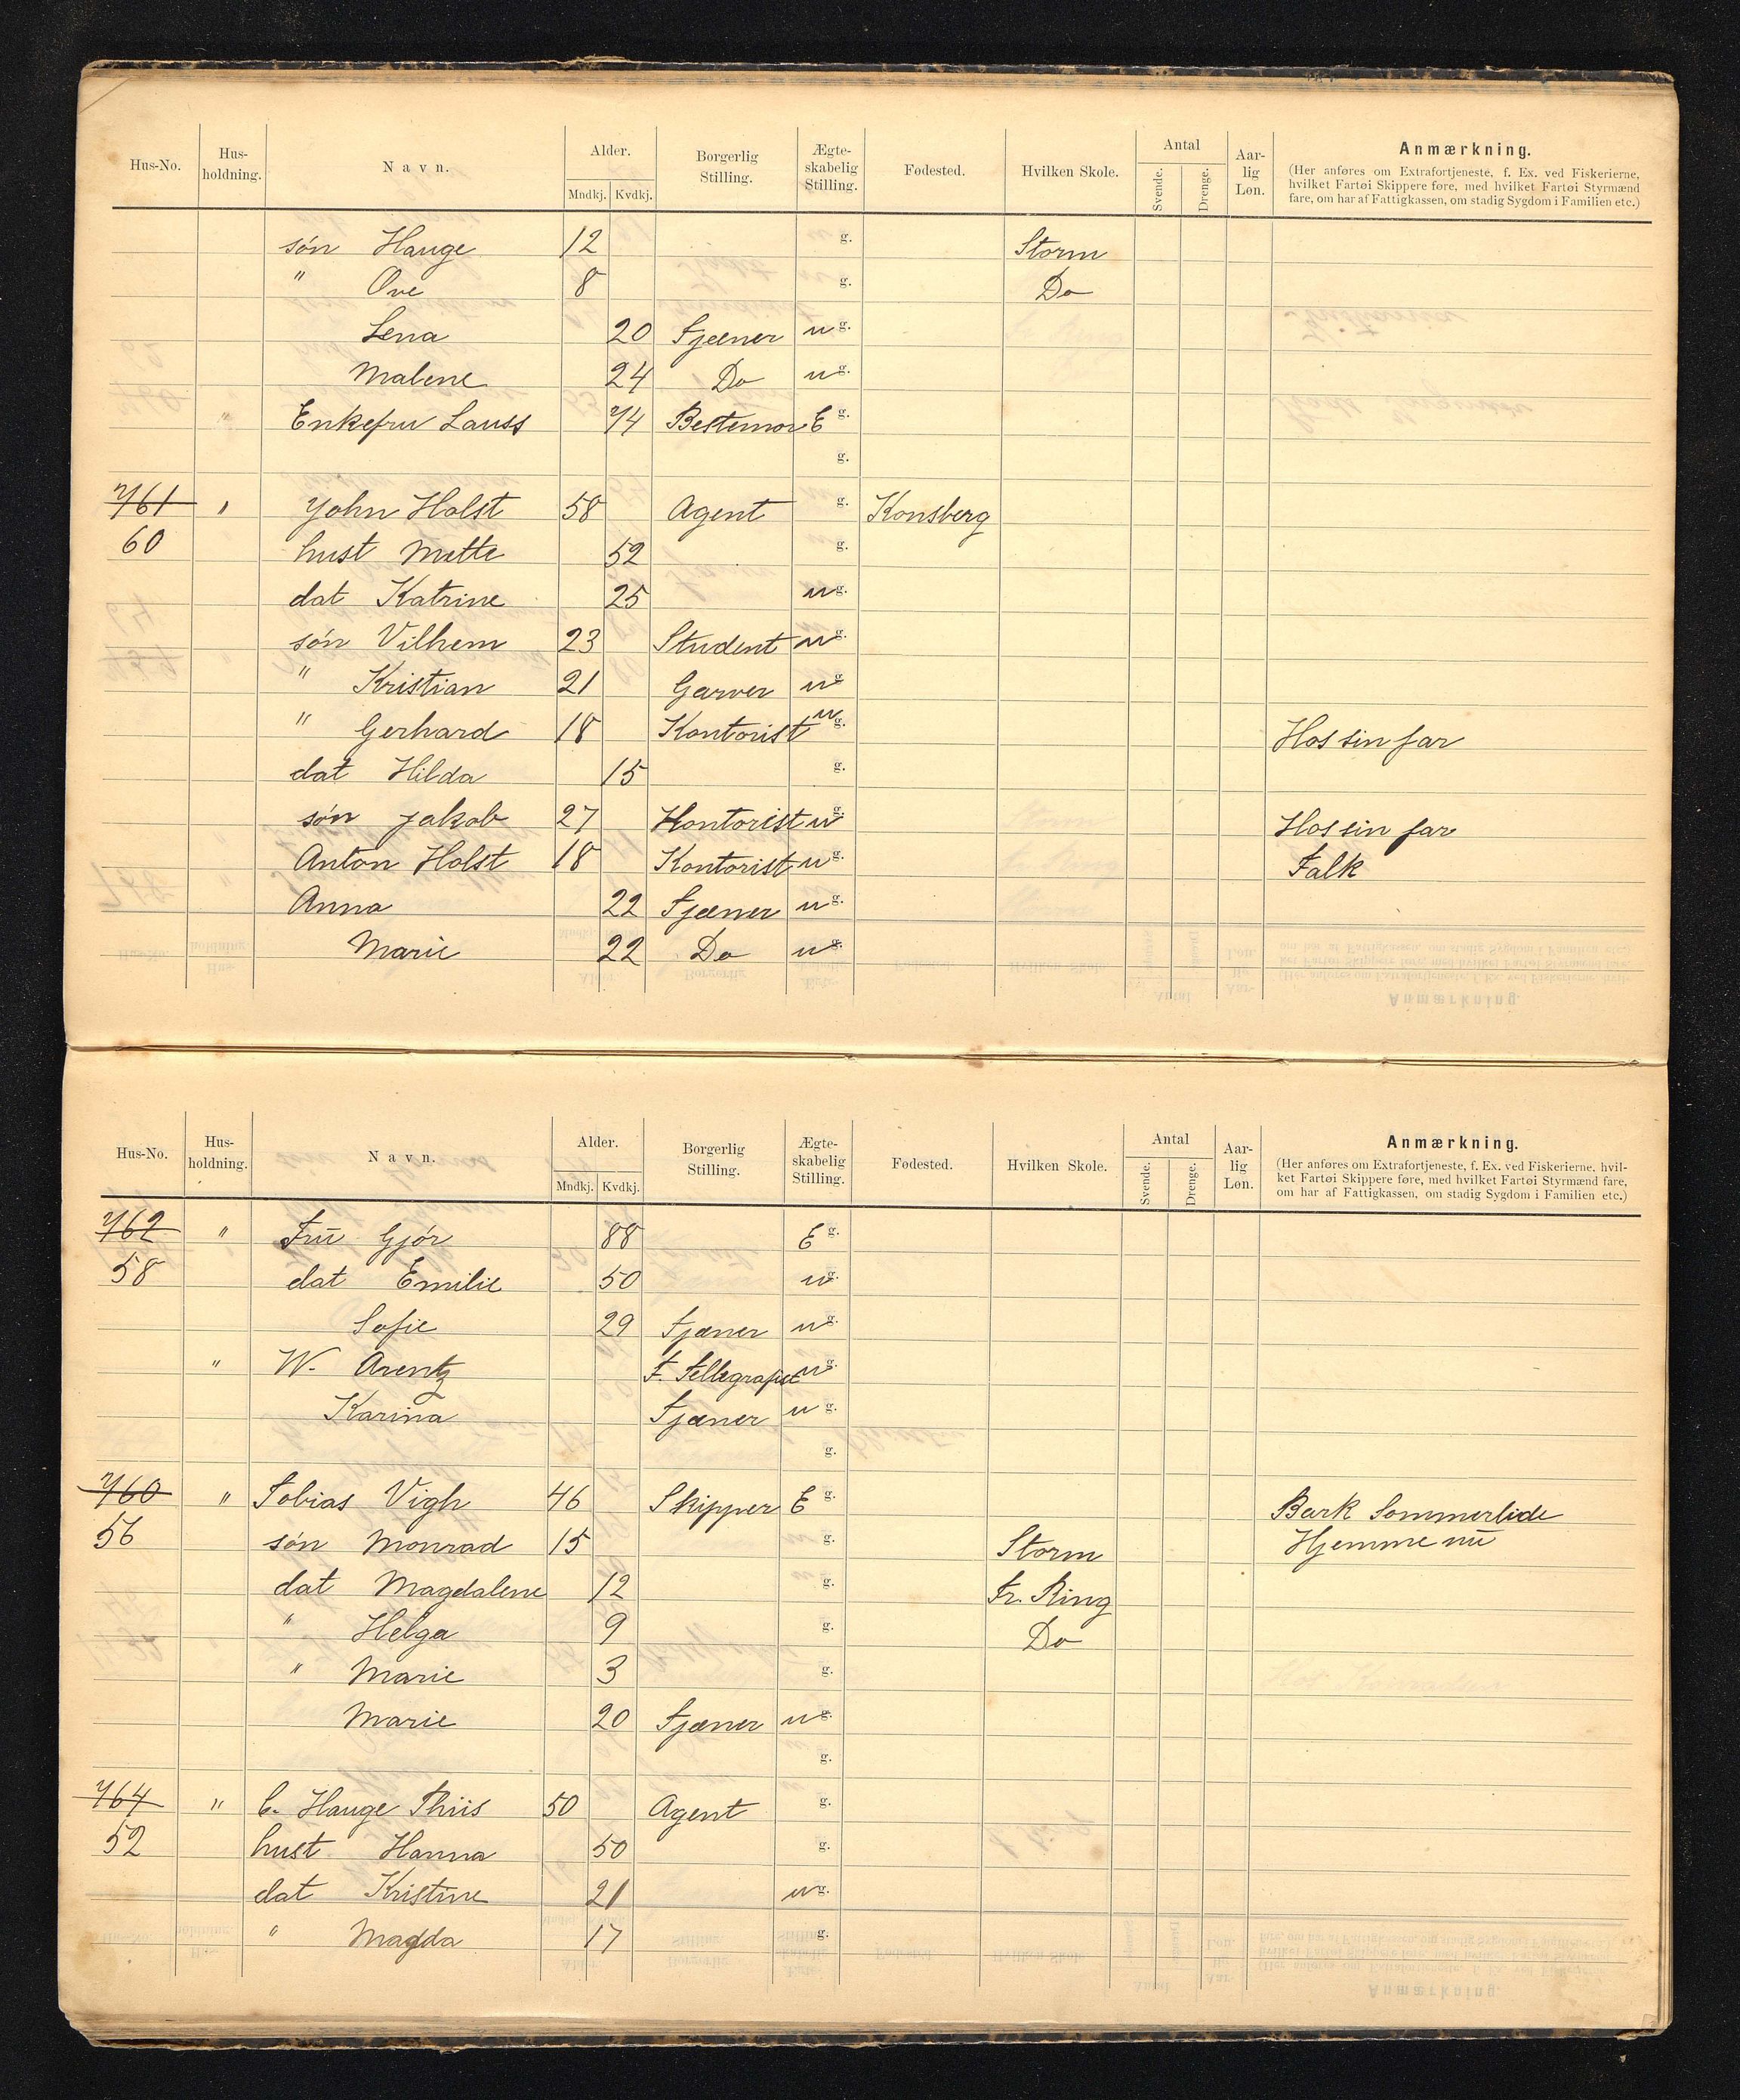 Hus-No. Hus-holdning. Navn. Alder. Mndkj. Kvdkj. Borgerlig Stilling. Ægte-skabelig Stilling. Fødested. Hvilken Skole. Antal Svende. Drenge. Aar-lig Løn. Anmærkning.
(Her anføres om Extrafortjeneste, f. Ex. ved Fiskerierne, hvilket Fartøi Skippere føre, med hvilket Fartøi Styrmænd fare, om har af Fattigkassen, om stadig Sygdom i Familien etc.)
søn Hauge 12 g. Storm
" Ove 8 g. Do
Lena 20 Tjener ug.
Malene 24 Do ug.
" Enkefru Lauss 74 Bestemor E g.
g.
761 " John Holst 58 Agent g. Konsberg
60 hust Mette 52 g.
dat Katrine 25 ug.
søn Vilhem 23 Student ug.
" Kristian 21 Garver ug.
" Gerhard 18 Kontorist ug. Hos sin far
dat Hilda 15 g.
søn Jakob 27 Kontorist ug. Hos sin far
Anton Holst 18 Kontorist ug. Falk
Anna 22 Tjæner ug.
Marie 22 Do ug.
Hus-No. Hus-holdning. Navn. Alder. Mndkj. Kvdkj. Borgerlig Stilling. Ægte-skabelig Stilling. Fødested. Hvilken Skole. Antal Svende. Drenge. Aar-lig Løn. Anmærkning.
(Her anføres om Extrafortjeneste, f. Ex. ved Fiskerierne, hvil-ket Fartøi Skippere føre, med hvilket Fartøi Styrmænd fare, om har af Fattigkassen, om stadig Sygdom i Familien etc.)
762 " Frū Gjør 88 E g.
58 dat Emilie 50 ug.
Sofie 29 Tjæner ug.
" W. Arentz F. Tellegrafist ug.
Karina Tjæner ug.
g.
760 " Tobias Vigh 46 Skipper E g. Bark Sommerlide
56 søn Monrad 15 g. Storm Hjemme nū
dat Magdalene 12 g. Fr. Ring
" Helga 9 g. Do
" Marie 3 g.
Marie 20 Tjæner ug.
g.
764 " C. Hauge Thiis 50 Agent g.
52 hust Hanna 50 g.
dat Kristine 21 ug.
" Magda 17 g.